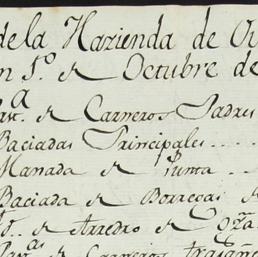 de la Hazienda de
n 1.º de Octubre de
de Carneros Padres
Baciadas Principales....
Manada de Punta ...
Baciada de Borregas de
de Arredro de
de Carneros